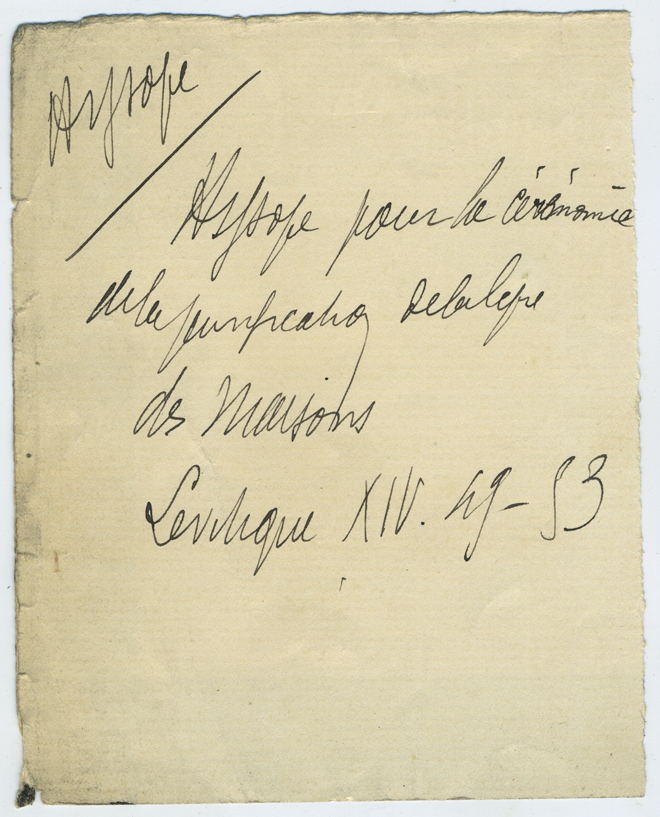 Hysope
Hysope pour la cérémonie
de la purification de la lèpre
des Maisons
Levitique XIV. 49-53